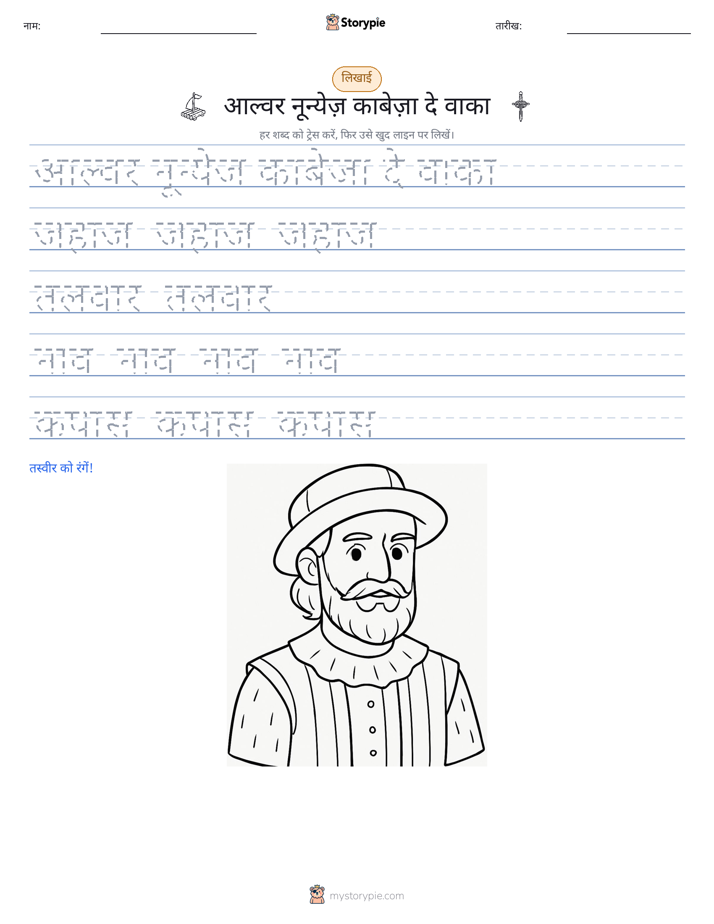 नाम:
Storypie
तारीख:
लिखाई
आल्वर नून्येज़ काबेज़ा दे वाका
हर शब्द को ट्रेस करें, फिर उसे खुद लाइन पर लिखें।
आल्वर नून्येज काबेजा दे वाका
जहाज जहाज जहाज
तलवार तलवार
नाव नाव नाव नाव
कपास कपास कपास
तस्वीर को रंगें!
mystorypie.com